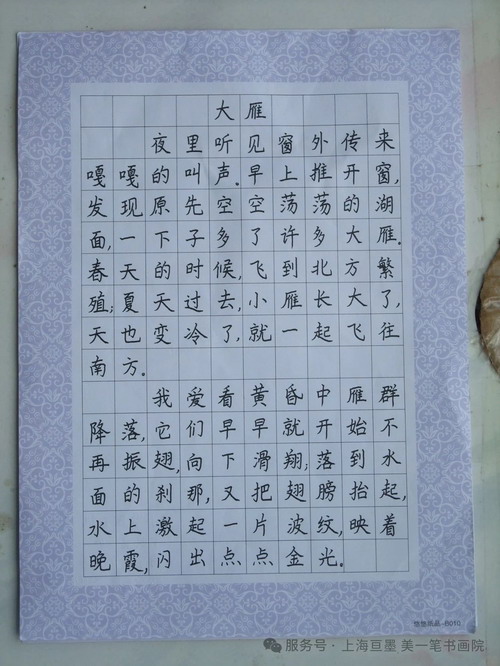 大雁
夜里听见窗外传来
嘎嘎的叫声。早上推开窗,
发现原先空空荡荡的湖
面,一下子多了许多大雁。
春天的时候,飞到北方繁
殖;夏天过去,小雁长大了,
天也变冷了,就一起飞往
南方。
我爱看黄昏中雁群
降落,它们早早就开始不
再振翅,向下滑翔;落到水
面的刹那,又把翅膀抬起,
水上激起一片波纹,映着
晚霞,闪出点点金光。
悠悠纸品-B010
服务号·上海亘墨 美一笔书画院